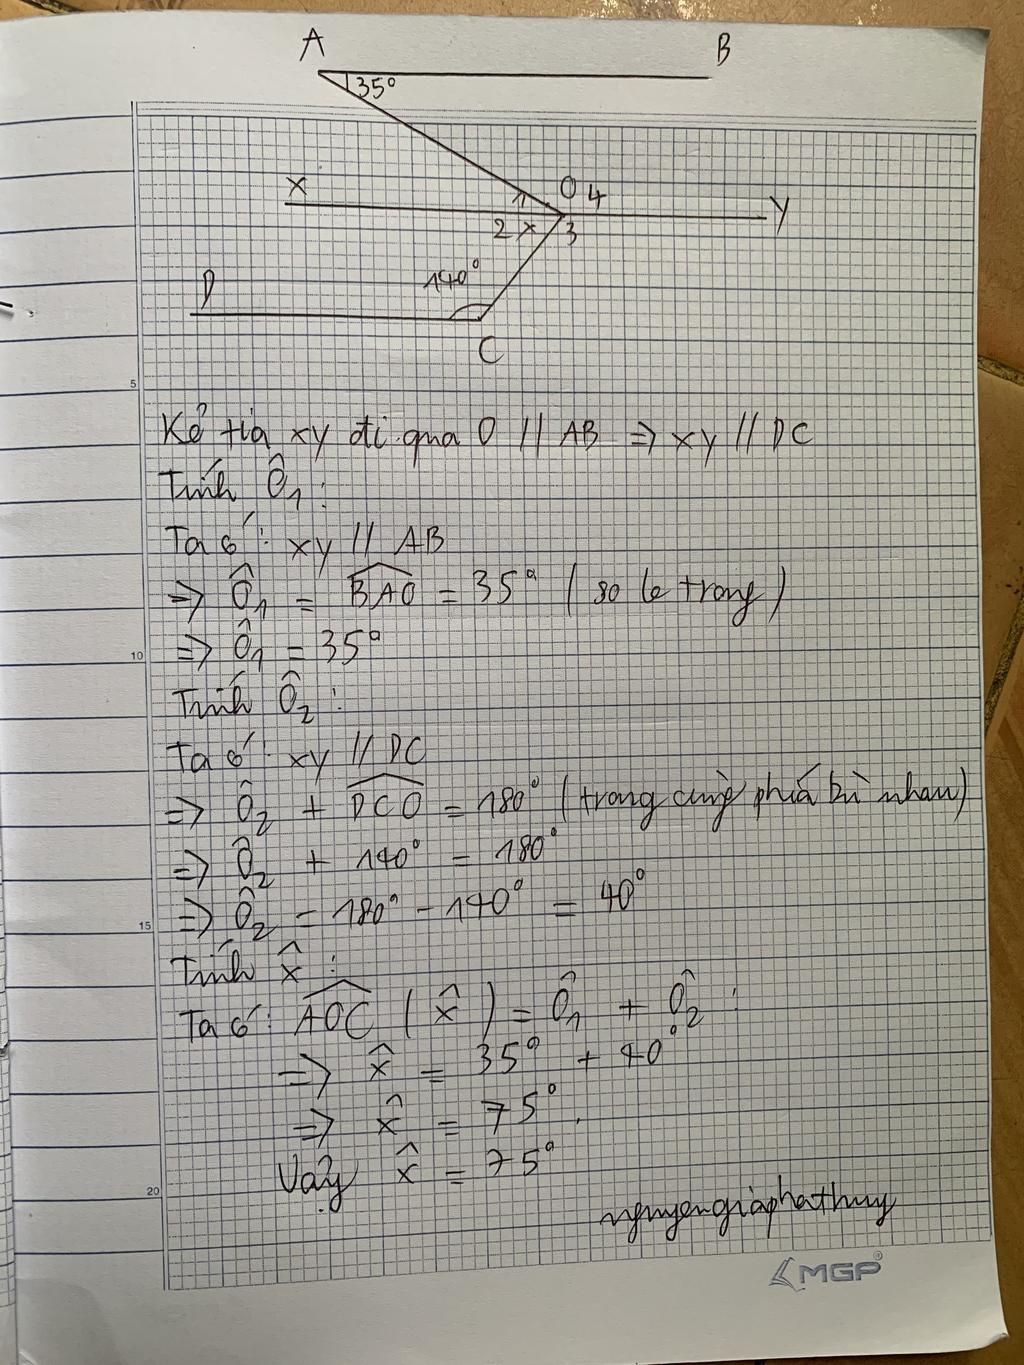 A B
35°
x O 4 y
1
2 x 3
140°
D
C
5
Kẻ tia xy đi qua O // AB => xy // DC
Tính Ô1 :
Ta có : xy // AB
=> Ô1 = BAO = 35° ( so le trong )
10
=> Ô1 = 35°
Tính Ô2 :
Ta có : xy // DC
=> Ô2 + DCO = 180° ( trong cùng phía bù nhau )
=> Ô2 + 140° = 180°
15
=> Ô2 = 180° - 140° = 40°
Tính x̂ :
Ta có : AOC ( x̂ ) = Ô1 + Ô2 :
=> x̂ = 35° + 40°
=> x̂ = 75° .
20
Vậy x̂ = 75°
nguyengiaphathuy
MGP